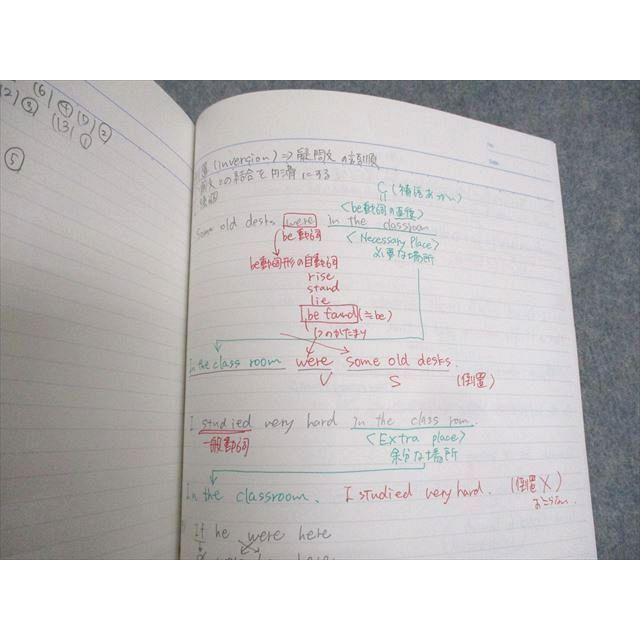 (6) ④ (7) ②
(2) ③ (3) ①
⑤
倒置 (inversion) ⇒ 疑問文の語順
前文との結合を円滑にする
強調
C (補語あつかい)
<be動詞の直後>
Some old desks were in the classroom
be動詞
<Necessary Place>
必要な場所
be動詞形の自動詞
rise
stand
lie
be found (≒be)
1つのかたまり
In the class room were some old desks.
V S (倒置)
I studied very hard in the class room.
一般動詞
<Extra place>
余分な場所
In the classroom, I studied very hard. (倒置 X)
If he were here